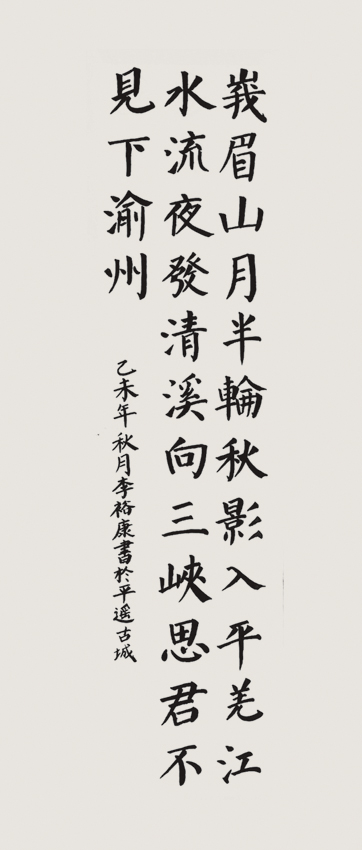 峩眉山月半輪秋影入平羌江
水流夜發清溪向三峽思君不
見下渝州
乙未年秋月李裕康書於平遥古城